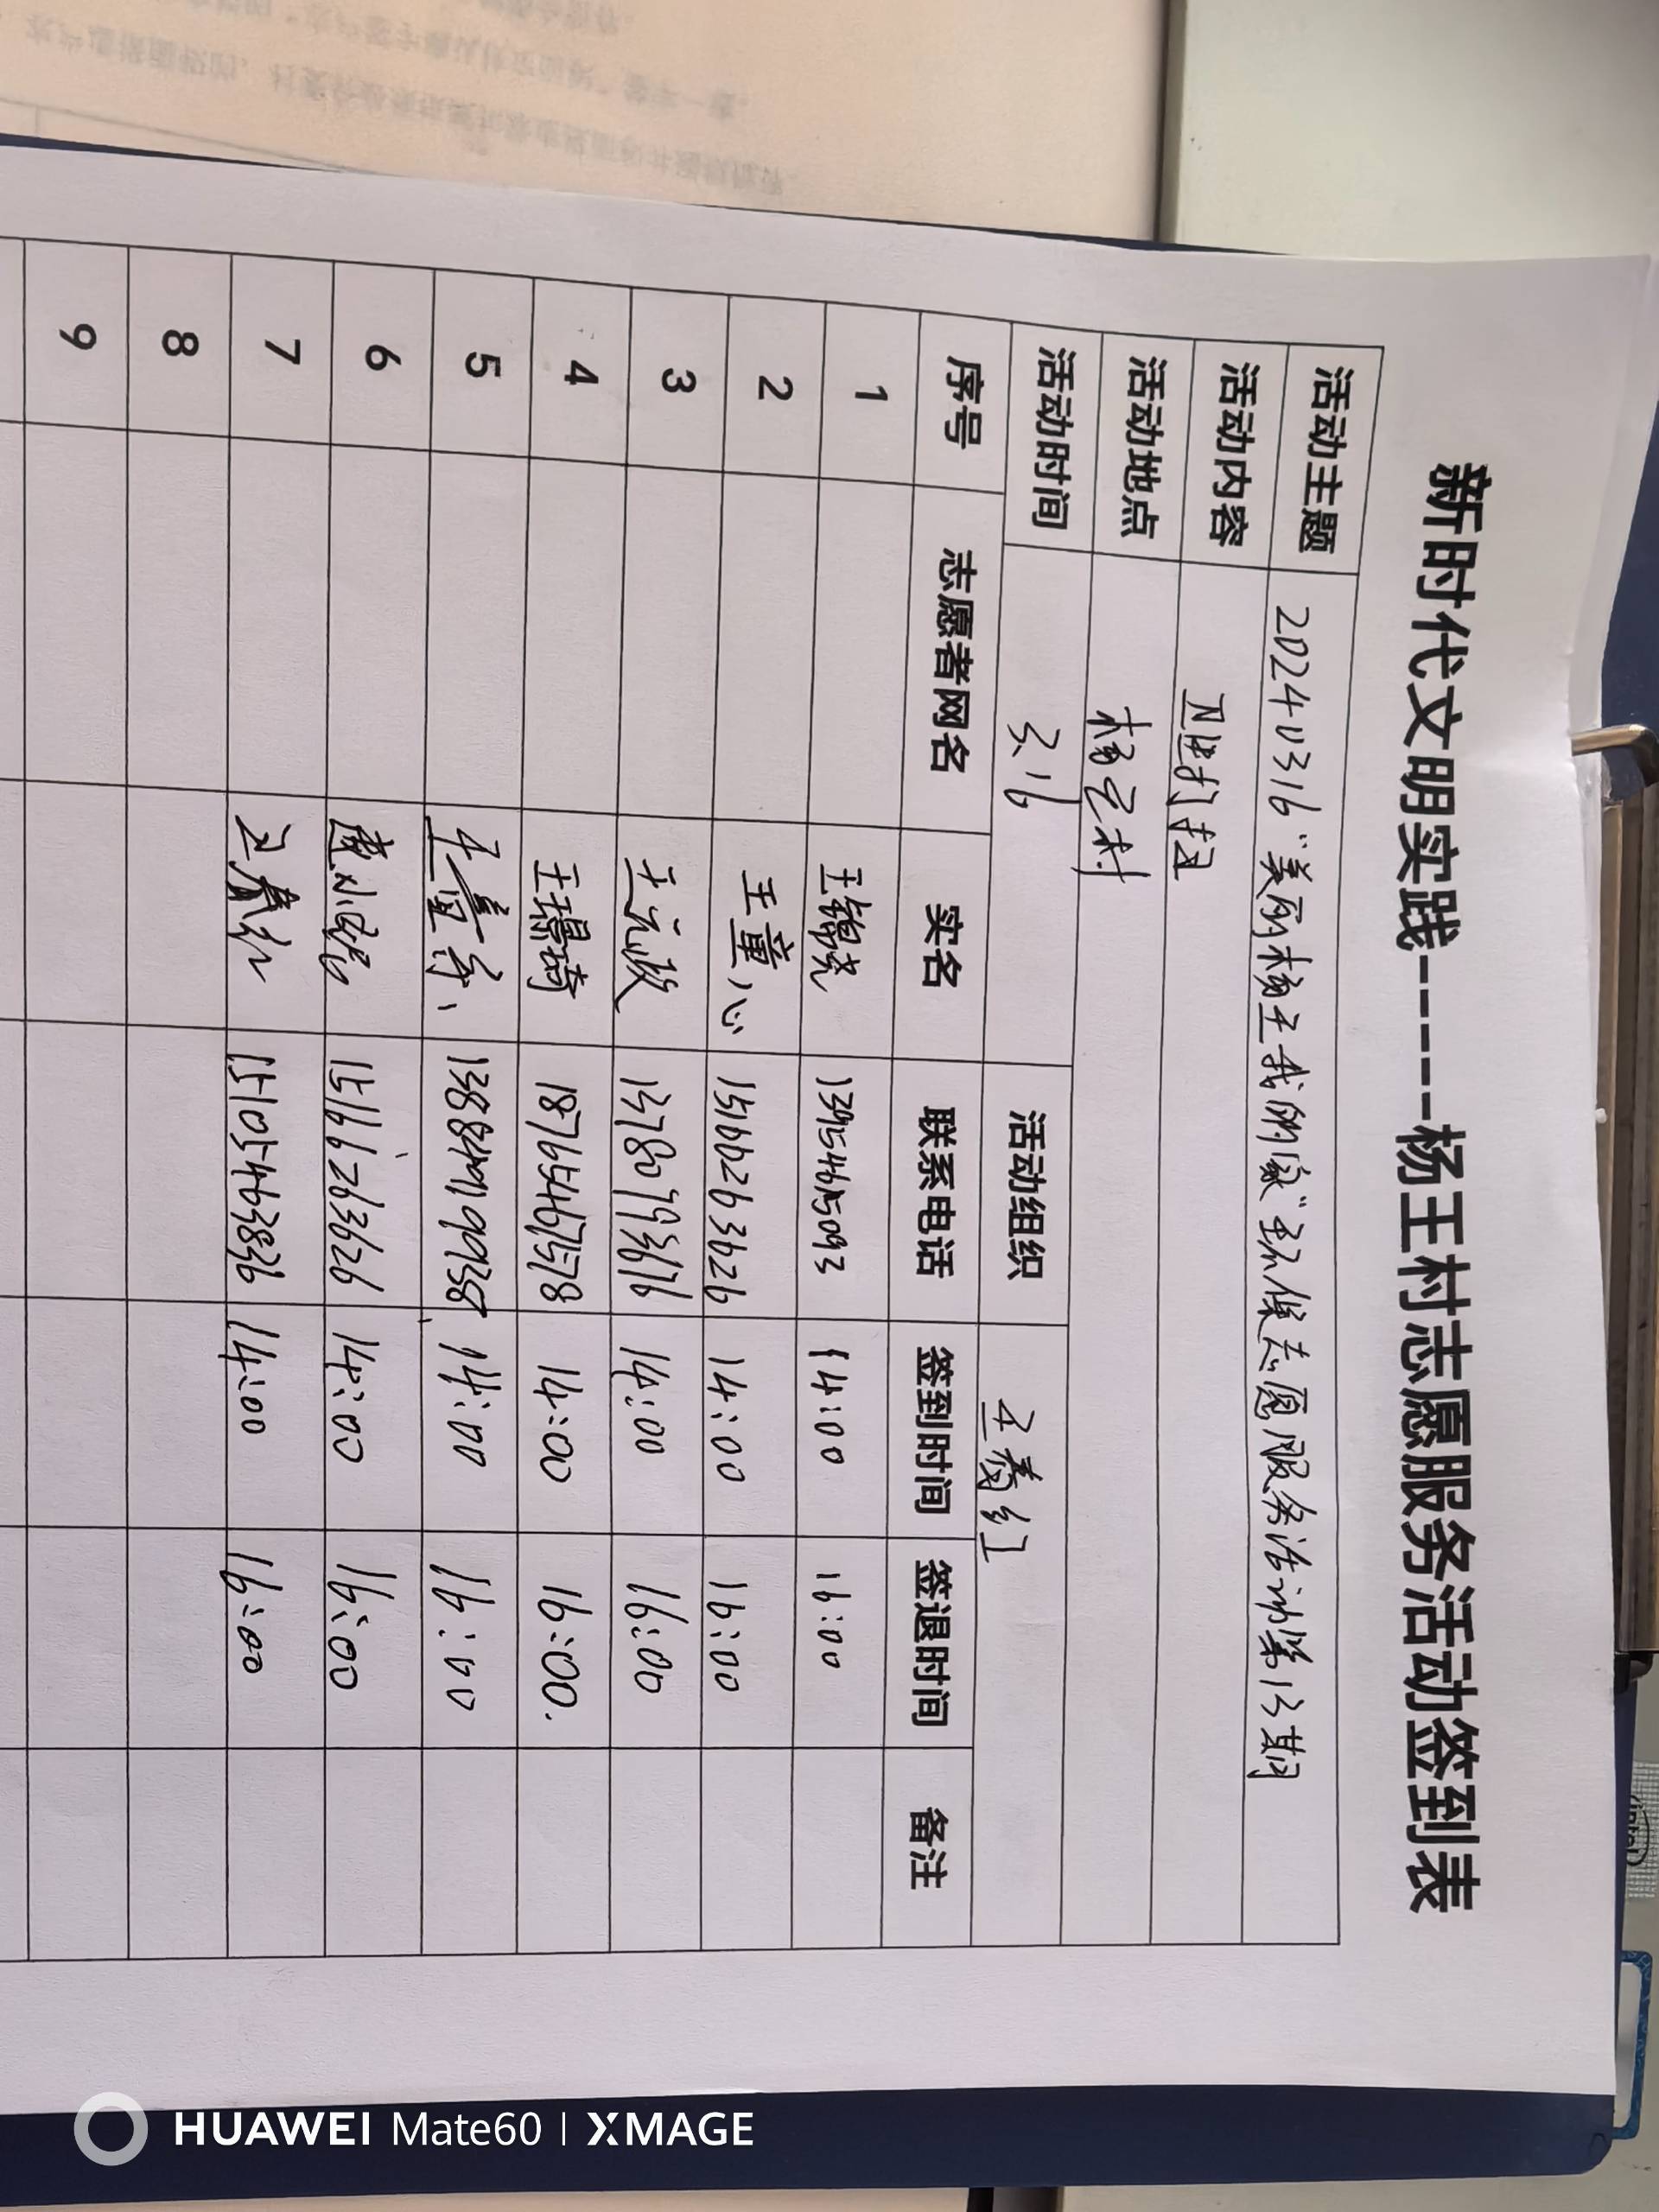 新时代文明实践-----杨王村志愿服务活动签到表
活动主题 20240316“美丽杨王我的家”环保志愿服务活动第13期
活动内容 卫生打扫
活动地点 杨王村
活动时间 3.16 活动组织 王春红
序号 志愿者网名 实名 联系电话 签到时间 签退时间 备注
1 王锦尧 14:00 16:00
2 王童心 15166263626 14:00 16:00
3 王元政 13780793676 14:00 16:00
4 王璟琦 18765467578 14:00 16:00.
5 14:00 16:00
6 15166263626 14:00 16:00
7 王春红 15105463836 14:00 16:00
8
9
HUAWEI Mate60 | XMAGE
intel